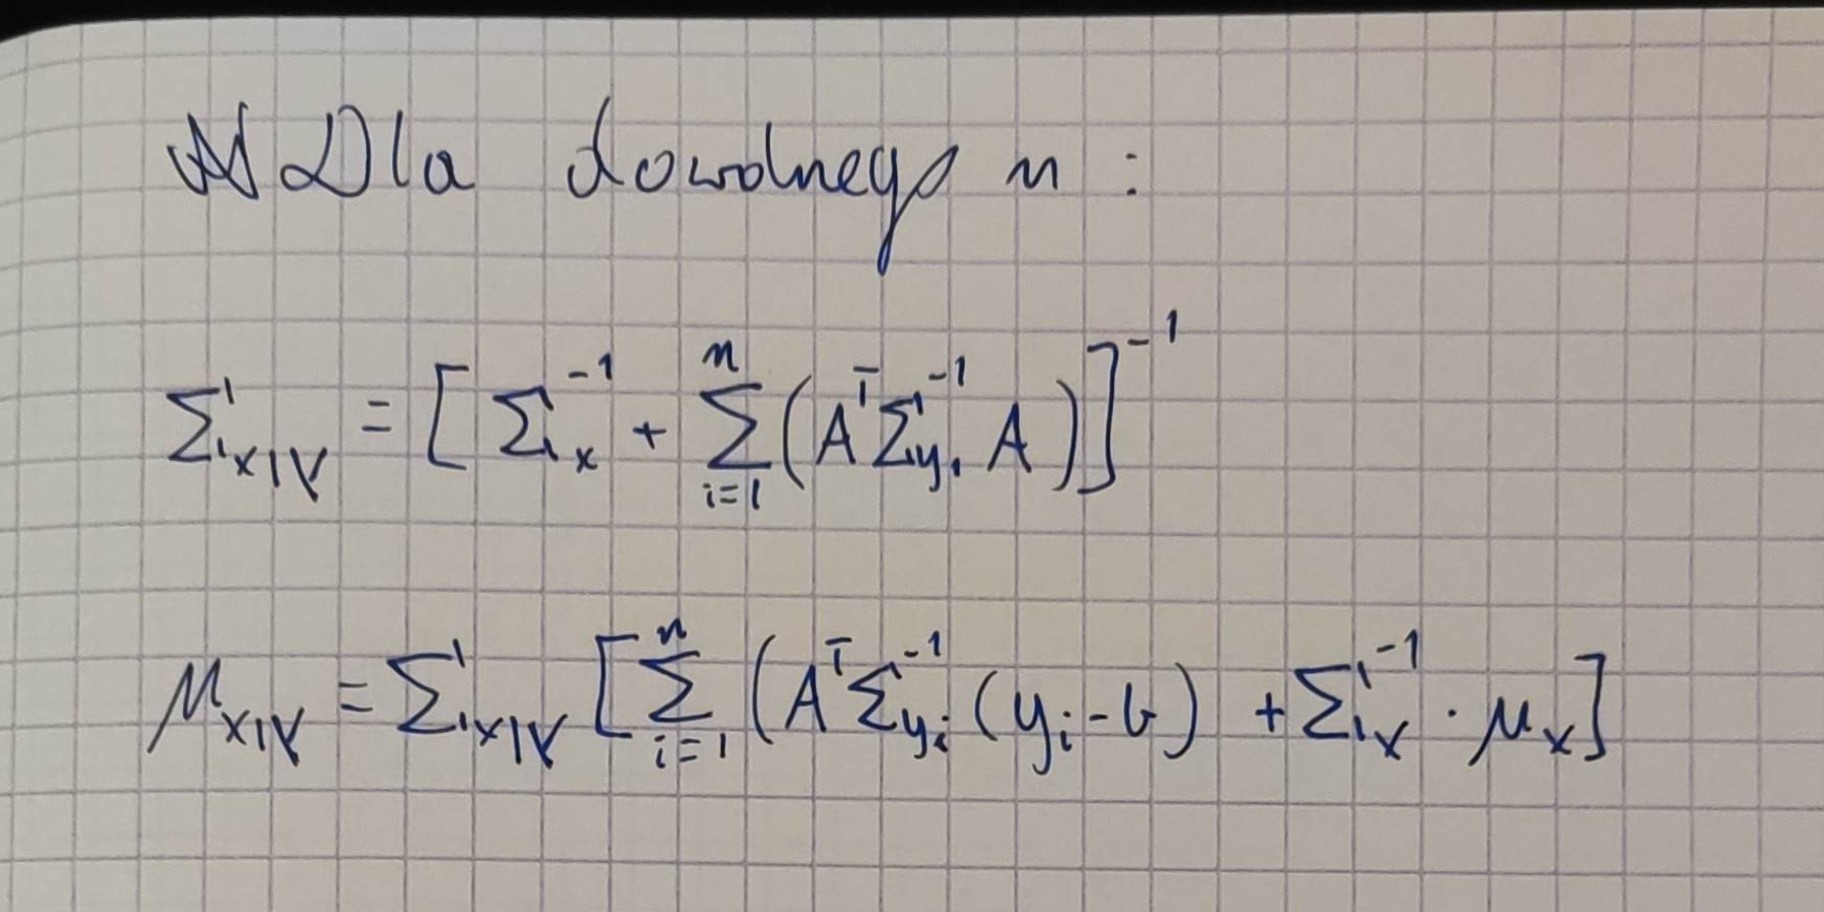 Dla dowolnego n :
Σ_{x|y} = [ Σ_x^{-1} + Σ_{i=1}^{n} ( A^T Σ_{y_i}^{-1} A ) ]^{-1}
μ_{x|y} = Σ_{x|y} [ Σ_{i=1}^{n} ( A^T Σ_{y_i}^{-1} ( y_i - b ) + Σ_x^{-1} · μ_x ]